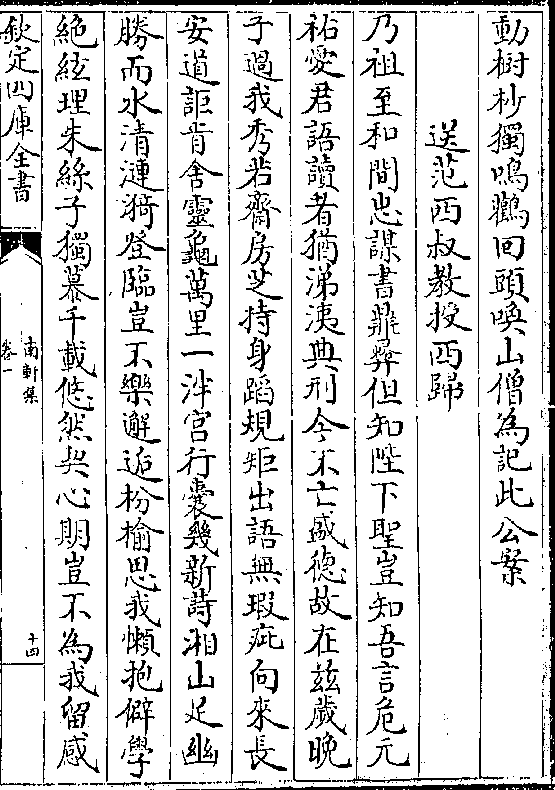 動樹杪獨鳴鸛回頭喚山僧為記此公案
送范西叔教授西歸
乃祖至和間忠謀書鼎彝但知陛下聖豈知吾言危元
祐愛君語讀者猶涕洟典刑今不亡盛德故在兹歲晚
子過我秀若齋房芝持身蹈規矩出語無瑕疵向來長
安道詎肯舍靈龜萬里一泮宫行囊幾新詩湘山足幽
勝而水清漣漪登臨豈不樂邂逅枌榆思我懶抱僻學
絶絃理朱絲子獨慕千載悠然契心期豈不為我留感
欽定四庫全書
南軒集
卷一
十四